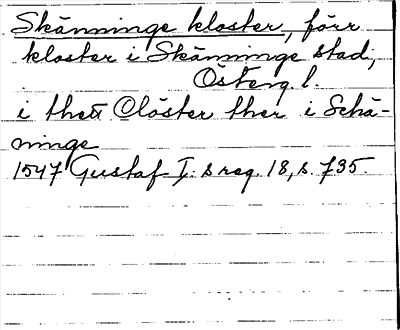 Skänninge kloster, förr
kloster i Skänninge stad,
Österg. l.
i thett Clöster ther i Schä-
ninge
1547 Gustaf I:s reg. 18, s. 735.